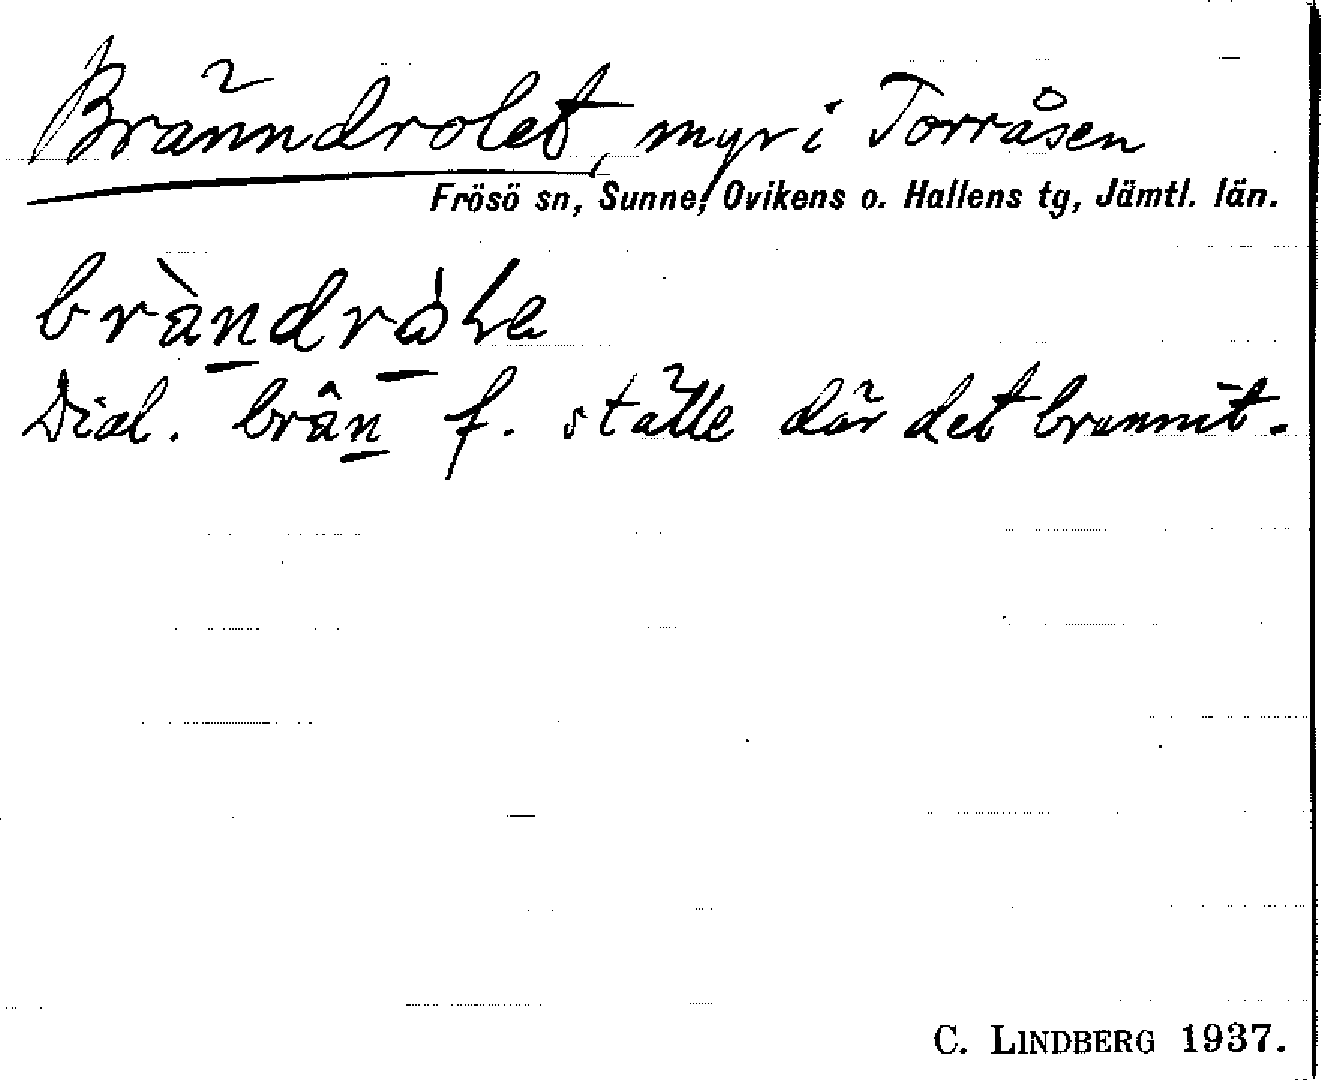 Bränndrolet, myr i Torråsen
Frösö sn, Sunne, Ovikens o. Hallens tg, Jämtl. län.
Dial. brân f. ställe där det brunnit.
C. LINDBERG 1937.